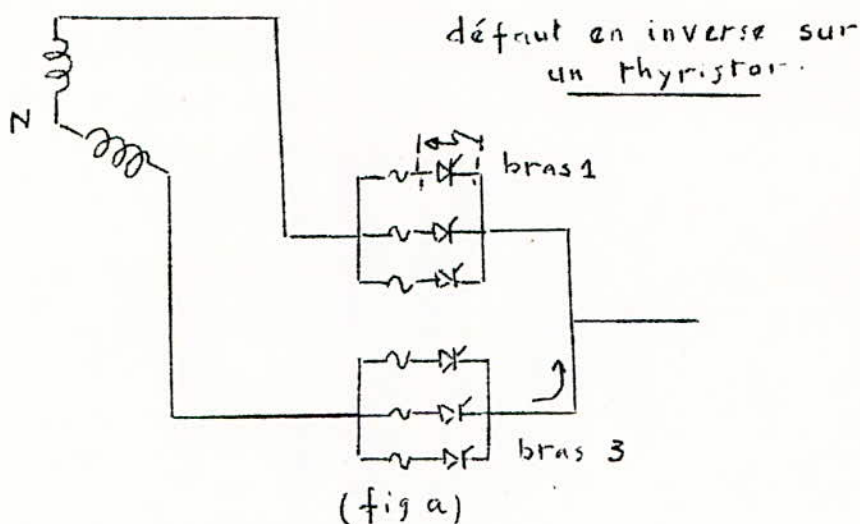 défaut en inverse sur
un thyristor.
N
bras 1
bras 3
(fig a)